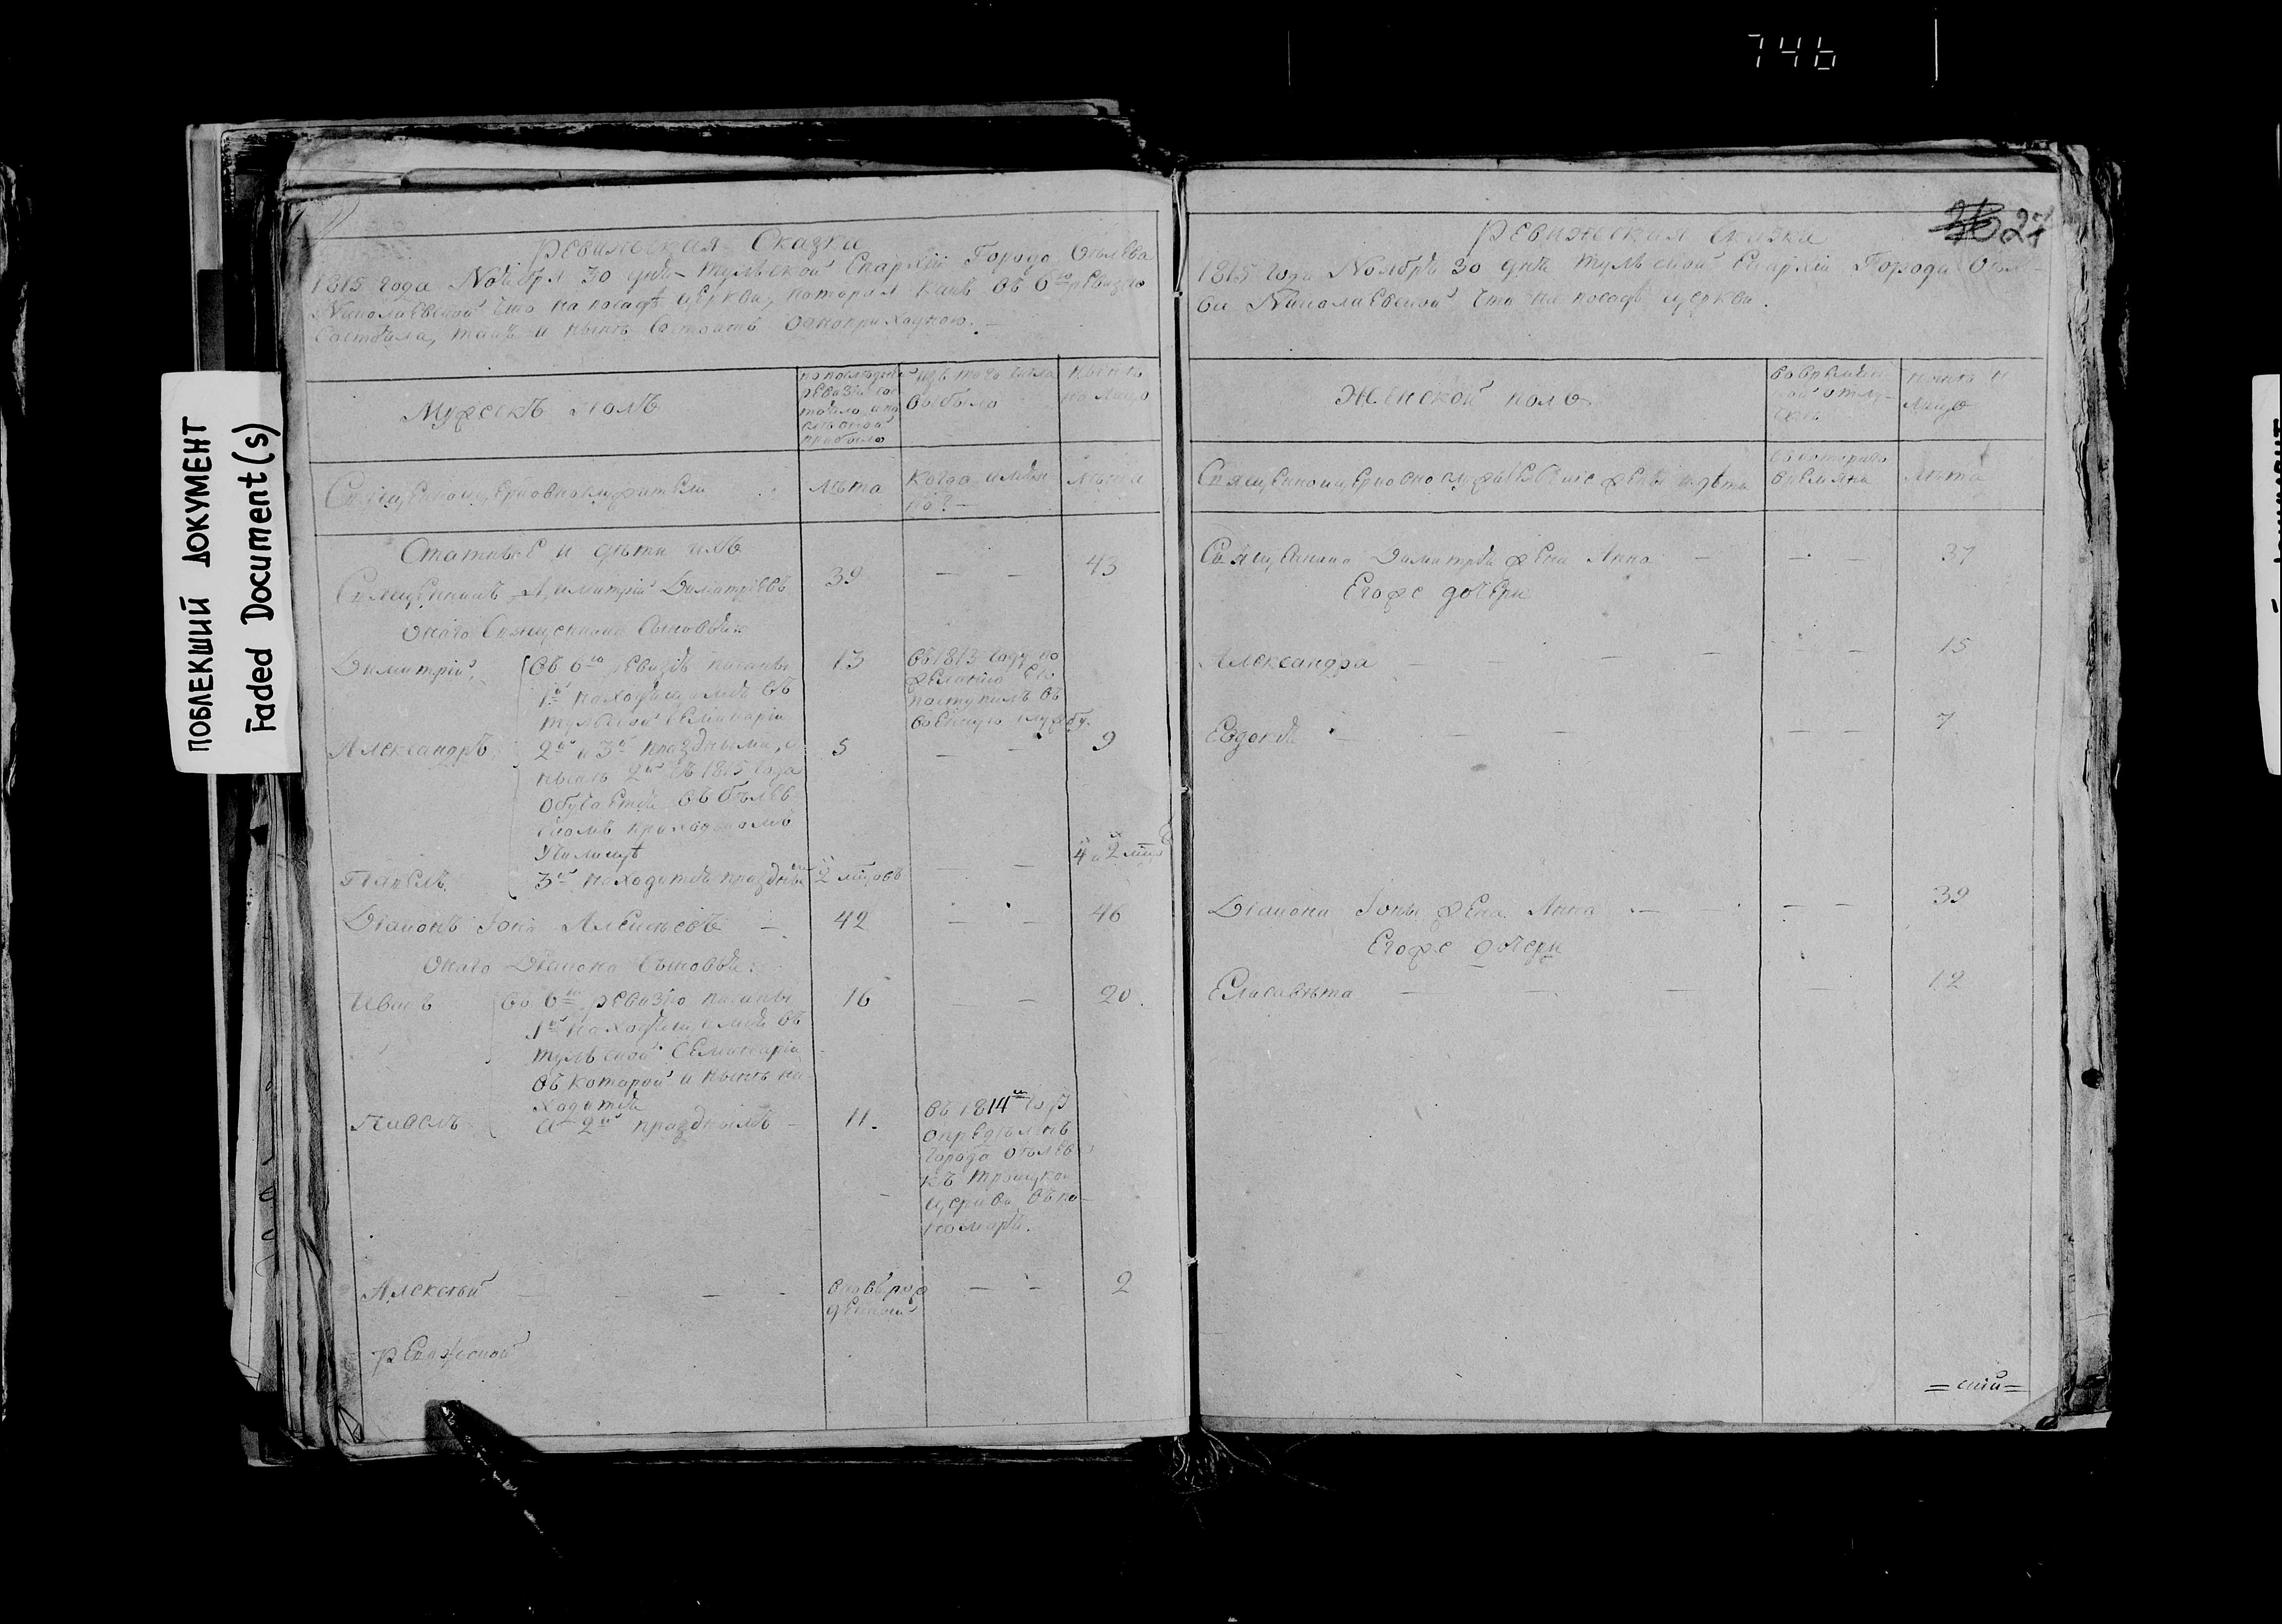 746
ПОБЛЕКШИЙ ДОКУМЕНТ
Faded Document(s)
Ревижская Сказка
1815 года Ноября 30 дня Тульской Епархіи Города Бѣлева
Николаевской что на посадѣ церкви, которая какъ въ 6ю ревизію
состояла, такъ и нынѣ состоитъ одноприходною. —
Мужескъ полъ
по послѣдней ревизіи состояло, и послѣ оной прибыло
изъ того числа выбыло
нынѣ на лицо
Священноцерковнослужители
лѣта
когда имянно? —
лѣта
Статные и дѣти ихъ
Священникъ Димитрій Димитріевъ 39 — — 43
Онаго Священника Сыновья:
Димитрій, въ 6ю ревизію писаны 13 въ 1813 году по
1й находящимся въ желанію его
Тульской Семинаріи поступилъ въ
военную службу.
Александръ, 2й и 3й праздными, а 5 — — 9
нынѣ 2й съ 1815 года
обучается въ Бѣлев
скомъ приходскомъ
Училищѣ
Павелъ. 3й находится празднымъ 2 мцовъ — — 4 и 2 мца
Діаконъ Іона Алексѣевъ — 42 — — 46
Онаго Діакона Сыновья:
Иванъ во 6ю ревизію писаны 16 — — 20.
1й находящимся въ
Тульской Семинаріи
въ которой и нынѣ на
ходится
Павелъ и 2й празднымъ — 11. въ 1814м году
опредѣленъ
города Бѣлева
къ Троицкой
церкви въ по-
номаря.
Алексѣй — — — вновьрож
денный — — 2
Ревижской
27
Ревижская сказка
1815 года Ноября 30 дня Тульской Епархіи Города Бѣле-
ва Николаевской что на посадѣ церкви.
Женской полъ
во временной отлучкѣ
нынѣ на лицо
Священноцерковнослужительскіе жены и дѣти
съ котораго времяни
лѣта
Священника Димитрія жена Анна — — — 37
Его же дочери
Александра — — — — — — 15
Евдокія — — — — — 7
Діакона Іоны жена Анна — — — — 39
Его же дочери
Елисавѣта — — — — — 12
= скій =